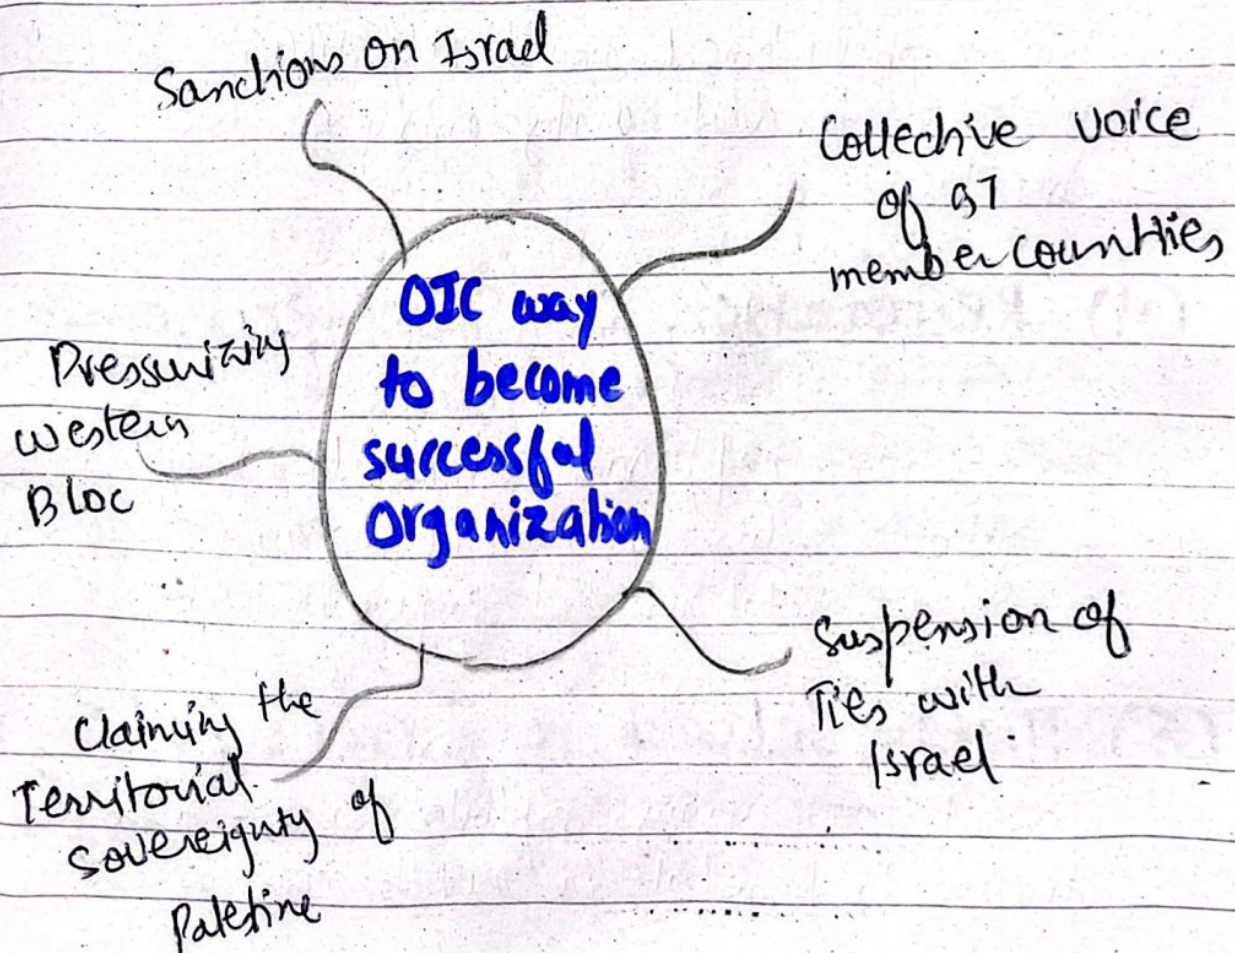 Sanctions on Israel
Collective voice
of 57
member countries
OIC way
to become
successful
Organization
Pressurizing
western
Bloc
Suspension of
Ties with
Israel.
Claiming the
Territorial
sovereignty of
Palestine